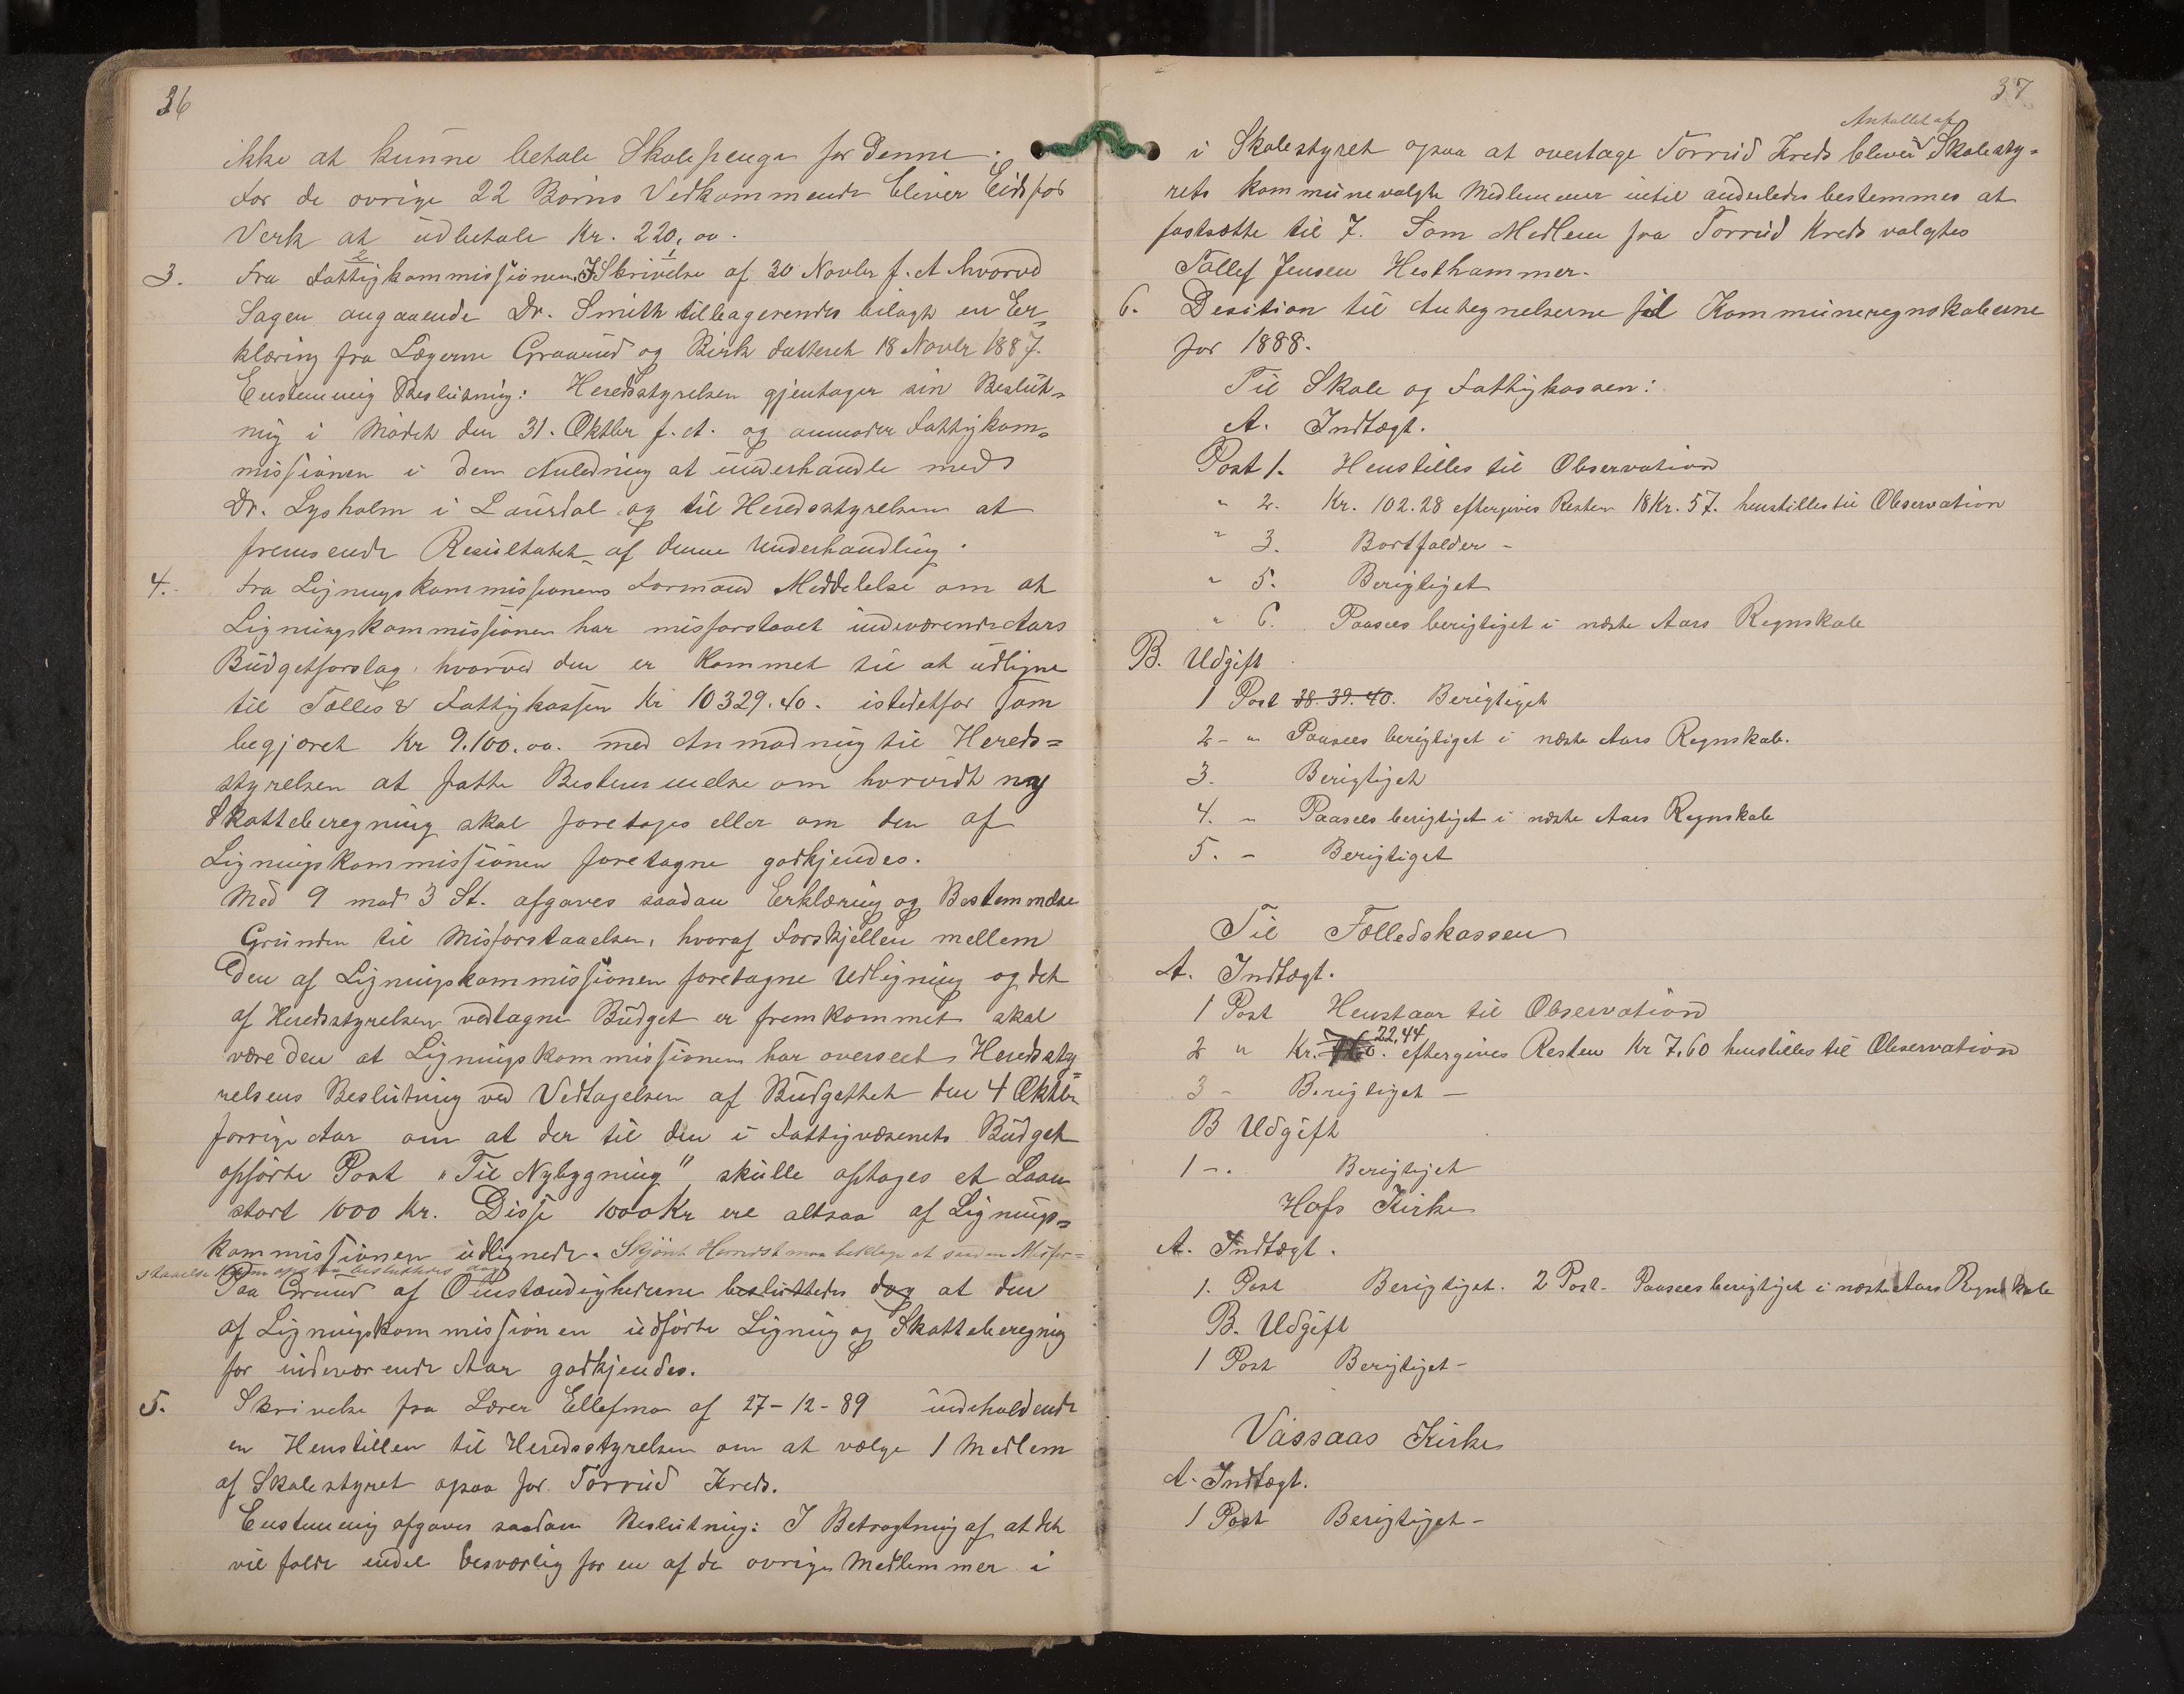 36
ikke at kunne betale Skolepenge for denne.
For de øvrige 22 Børns Vedkommende bliver Eidsfos
Verk at udbetale Kr. 220,00.
3. Fra Fattigkommissionen Skrivelse af 30 Novbr f. A hvorved
Sagen angaaende Dr. Smith tilbagesendes bilagt en Er-
klæring fra Lægerne Graarud og Birk datteret 18 Novbr 1887.
Enstemmig Beslutning: Heredsstyrelsen gjentager sin Beslut-
ning i Mødet den 31. Oktbr f. A. og anmoder Fattigkom-
missionen i den Anledning at underhandle med
Dr. Lysholm i Laurdal og til Heredsstyrelsen at
fremsende Resultatet af denne Underhandling.
4. Fra Ligningskommissionens Formand Meddelelse om at
Ligningskommissionen har misforstaaet indeværende Aars
Budgetforslag, hvorved den er kommet til at udligne
til Fælles & Fattigkassen Kr 10329.40. istedetfor som
begjæret Kr 9.100.00. med Anmodning til Hereds-
styrelsen at fatte Bestemmelse om hvorvidt ny
Skatteberegning skal foretages eller om den af
Ligningskommissionen foretagne godkjendes.
Med 9 mod 3 St. afgaves saadan Erklæring og Bestemmelse
Grunden til Misforstaaelsen, hvoraf Forskjellen mellem
den af Ligningskommissionen foretagne Udligning og det
af Heredsstyrelsen vedtagne Budget er fremkommet skal
være den at Ligningskommissionen har overseet Heredssty-
relsens Beslutning ved Vedtagelsen af Budgettet den 4 Oktbr
forrige Aar om at der til den i Fattigvæsenets Budget
opførte Post "Til Nybygning" skulle optages et Laan
stort 1000 Kr. Disse 1000 Kr ere altsaa af Lignings-
kommissionen udlignede. Skjønt Herredst maa beklage at saadan Misfor-
staaelse besluttedes dog
Paa Grund af Omstændighederne besluttedes dog at den
af Ligningskommissionen udførte Ligning og Skatteberegning
for indeværende Aar godkjendes.
5. Skrivelse fra Lærer Ellefmo af 27-12-89 indeholdende
en Henstillen til Heredsstyrelsen om at vælge 1 Medlem
af Skolestyret ogsaa for Torrud Kreds.
Enstemmig afgaves saadan Beslutning: I Betragtning af at det
vil falde endel besværlig for en af de øvrige Medlemmer i
37
Antallet af
i Skolestyret ogsaa at overtage Torrud Kreds blever Skolesty-
rets kommunevalgte Medlemmer indtil anderledes bestemmes at
fastsætte til 7. Som Medlem fra Torrud Kreds valgtes
Tollef Jensen Hesthammer.
6. Desition til Antegnelserne til Kommuneregnskaberne
for 1888.
Til Skole og Fattigkassen:
A. Indtægt.
Post 1. Henstilles til Observation
" 2. Kr. 102.28 eftergives Resten 18 Kr. 57. henstilles til Observation
" 3. Bortfalder -
" 5. Berigtiget
" 6. Paasees berigtiget i næste Aars Regnskab
B. Udgift
1 Post 38. 39. 40. Berigtiget
2 - " Paasees berigtiget i næste Aars Regnskab.
3. Berigtiget
4. - Paasees berigtiget i næste Aars Regnskab
5. - Berigtiget
Til Fælledskassen
A. Indtægt.
1 Post Henstaar til Observation
2 " Kr. 22,44 eftergives Resten Kr 7,60 henstilles til Observation
3 - Berigtiget -
B Udgift
1 -. Berigtiget
Hofs Kirke
A. Indtægt.
1. Post Berigtiget. 2 Post. Paasees berigtiget i næste Aars Regnskab
B. Udgift
1 Post Berigtiget -
Vassaas Kirke
A. Indtægt.
1 Post Berigtiget -